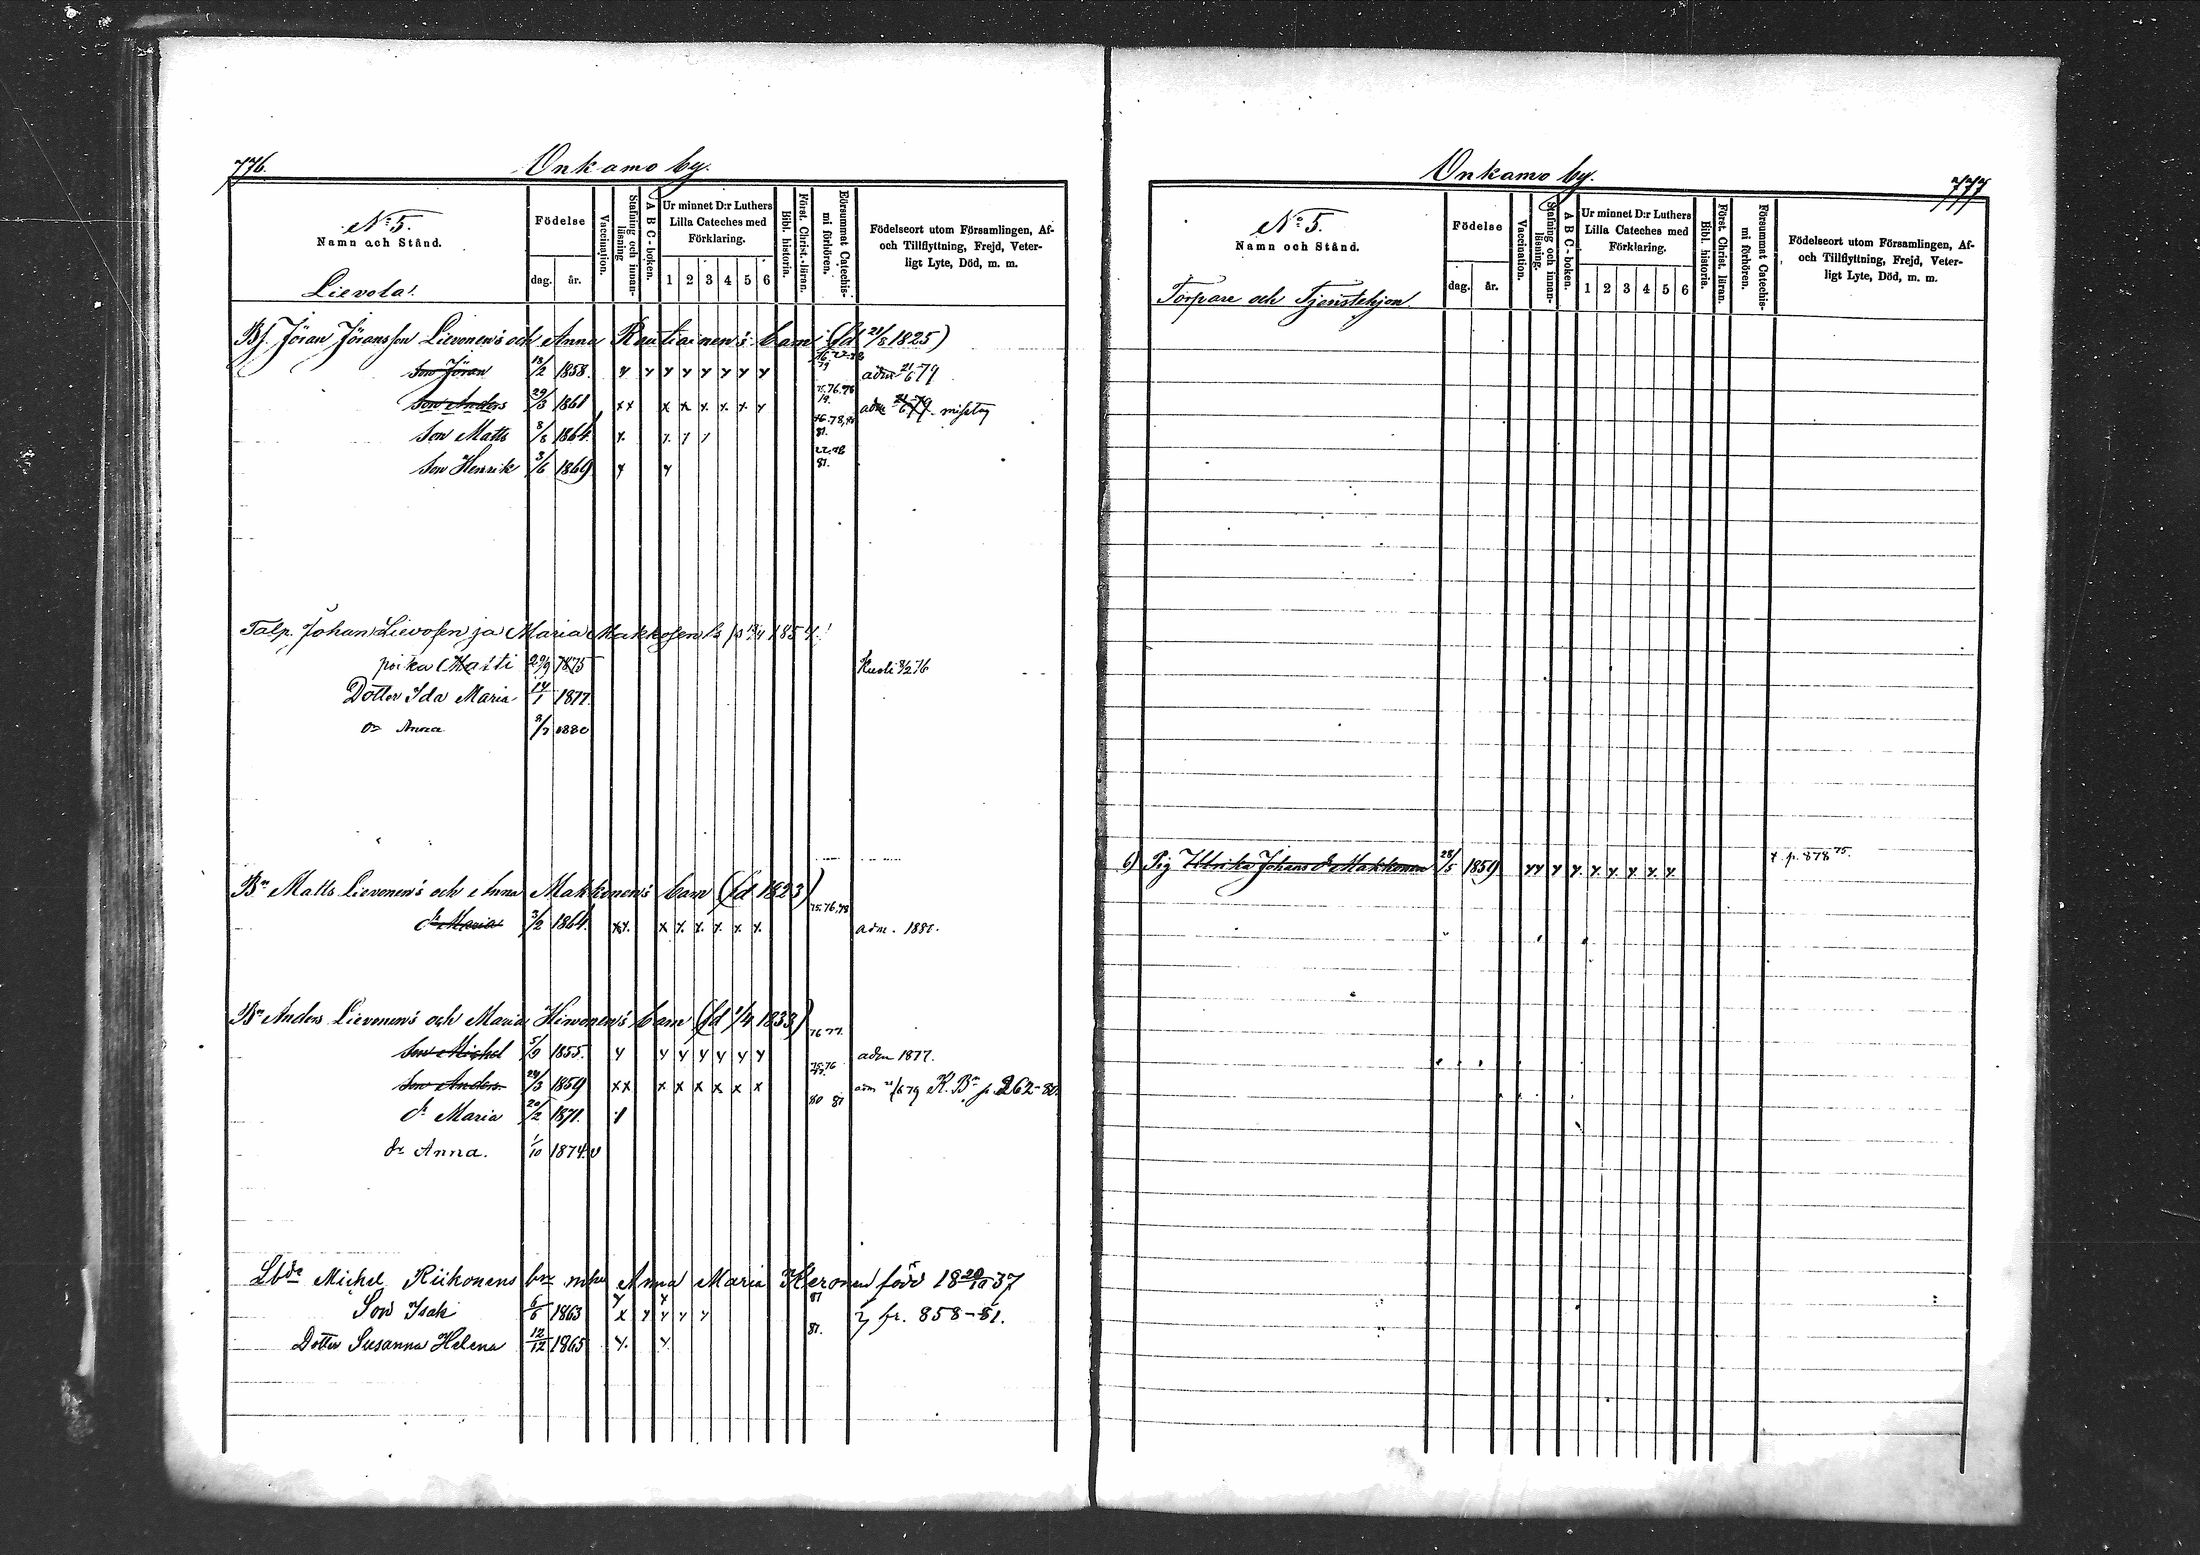 776.
Onkamo by.
No 5.
Namn och Stånd.
Lievola.
Födelse
dag. år.
Vaccination.
Stafning och innanläsning
A B C-boken.
Ur minnet D:r Luthers Lilla Cateches med Förklaring.
1 2 3 4 5 6
Bibl. historia.
Först. Christ. läran.
Försummat Catechismi förhören.
Födelseort utom Församlingen, Af- och Tillflyttning, Frejd, Veterligt Lyte, Död, m. m.
Bf. Jöran Jöransson Lievonen's och Anna Rautiainen's barn (fd 21/8 1825)
Son Jöran 13/2 1858. adm 21/6 79
Son Anders 29/3 1861 adm 21/6 79 misstag
Son Matts 8/8 1864.
Son Henrik 3/6 1869
Talp. Johan Lievosen ja Maria Makkosen 1854
poika Matti 20/9 1875 Kuoli 8/2 76
Dotter Ida Maria 14/1 1877.
Dr Anna 1880
Bn Matts Lievonen's och Anna Makkonen's barn (fd 1823)
dr Maria 3/2 1864. adm. 1881.
Bn Anders Lievonen's och Maria Hirvonen's barn (fd 1/4 1833)
Son Michel 5/9 1855. adm 1877.
Son Anders 24/3 1859 adm 21/6 79 K. Bn p 262-80.
dr Maria 20/2 1871.
dr Anna. 1/10 1874.
Michel Riikonens Anna Maria Keronen född 18 20/10 37
Son Isak 6/6 1863 fr. 858-81.
Dotter Susanna Helena 12/12 1865
Onkamo by.
777
No 5.
Namn och Stånd.
Torpare och Tjenstehjon.
Födelse
dag. år.
Vaccination.
Stafning och innanläsning.
A B C-boken.
Ur minnet D:r Luthers Lilla Cateches med Förklaring.
1 2 3 4 5 6
Bibl. historia.
Först. Christ. läran.
Försummat Catechismi förhören.
Födelseort utom Församlingen, Af- och Tillflyttning, Frejd, Veterligt Lyte, Död, m. m.
6) Pig Ulrika Johans dr Makkonen 28/5 1859 p. 878 75.